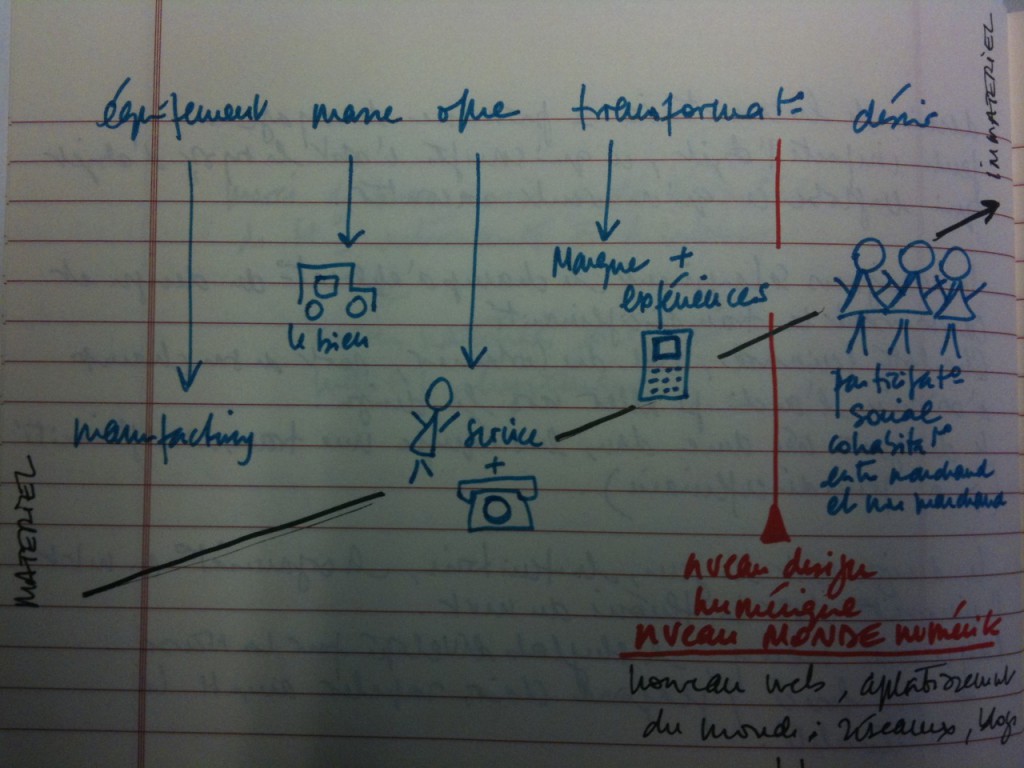 équipement masse offre transformat° désirs
IMMATERIEL
Marque +
expériences
le bien
participat°
social
manufacturing
service
+
cohabitat°
entre marchand
et non marchand
MATERIEL
niveau design
numérique
niveau MONDE numérik
nouveau web, aplatissement
du monde; réseaux, blogs